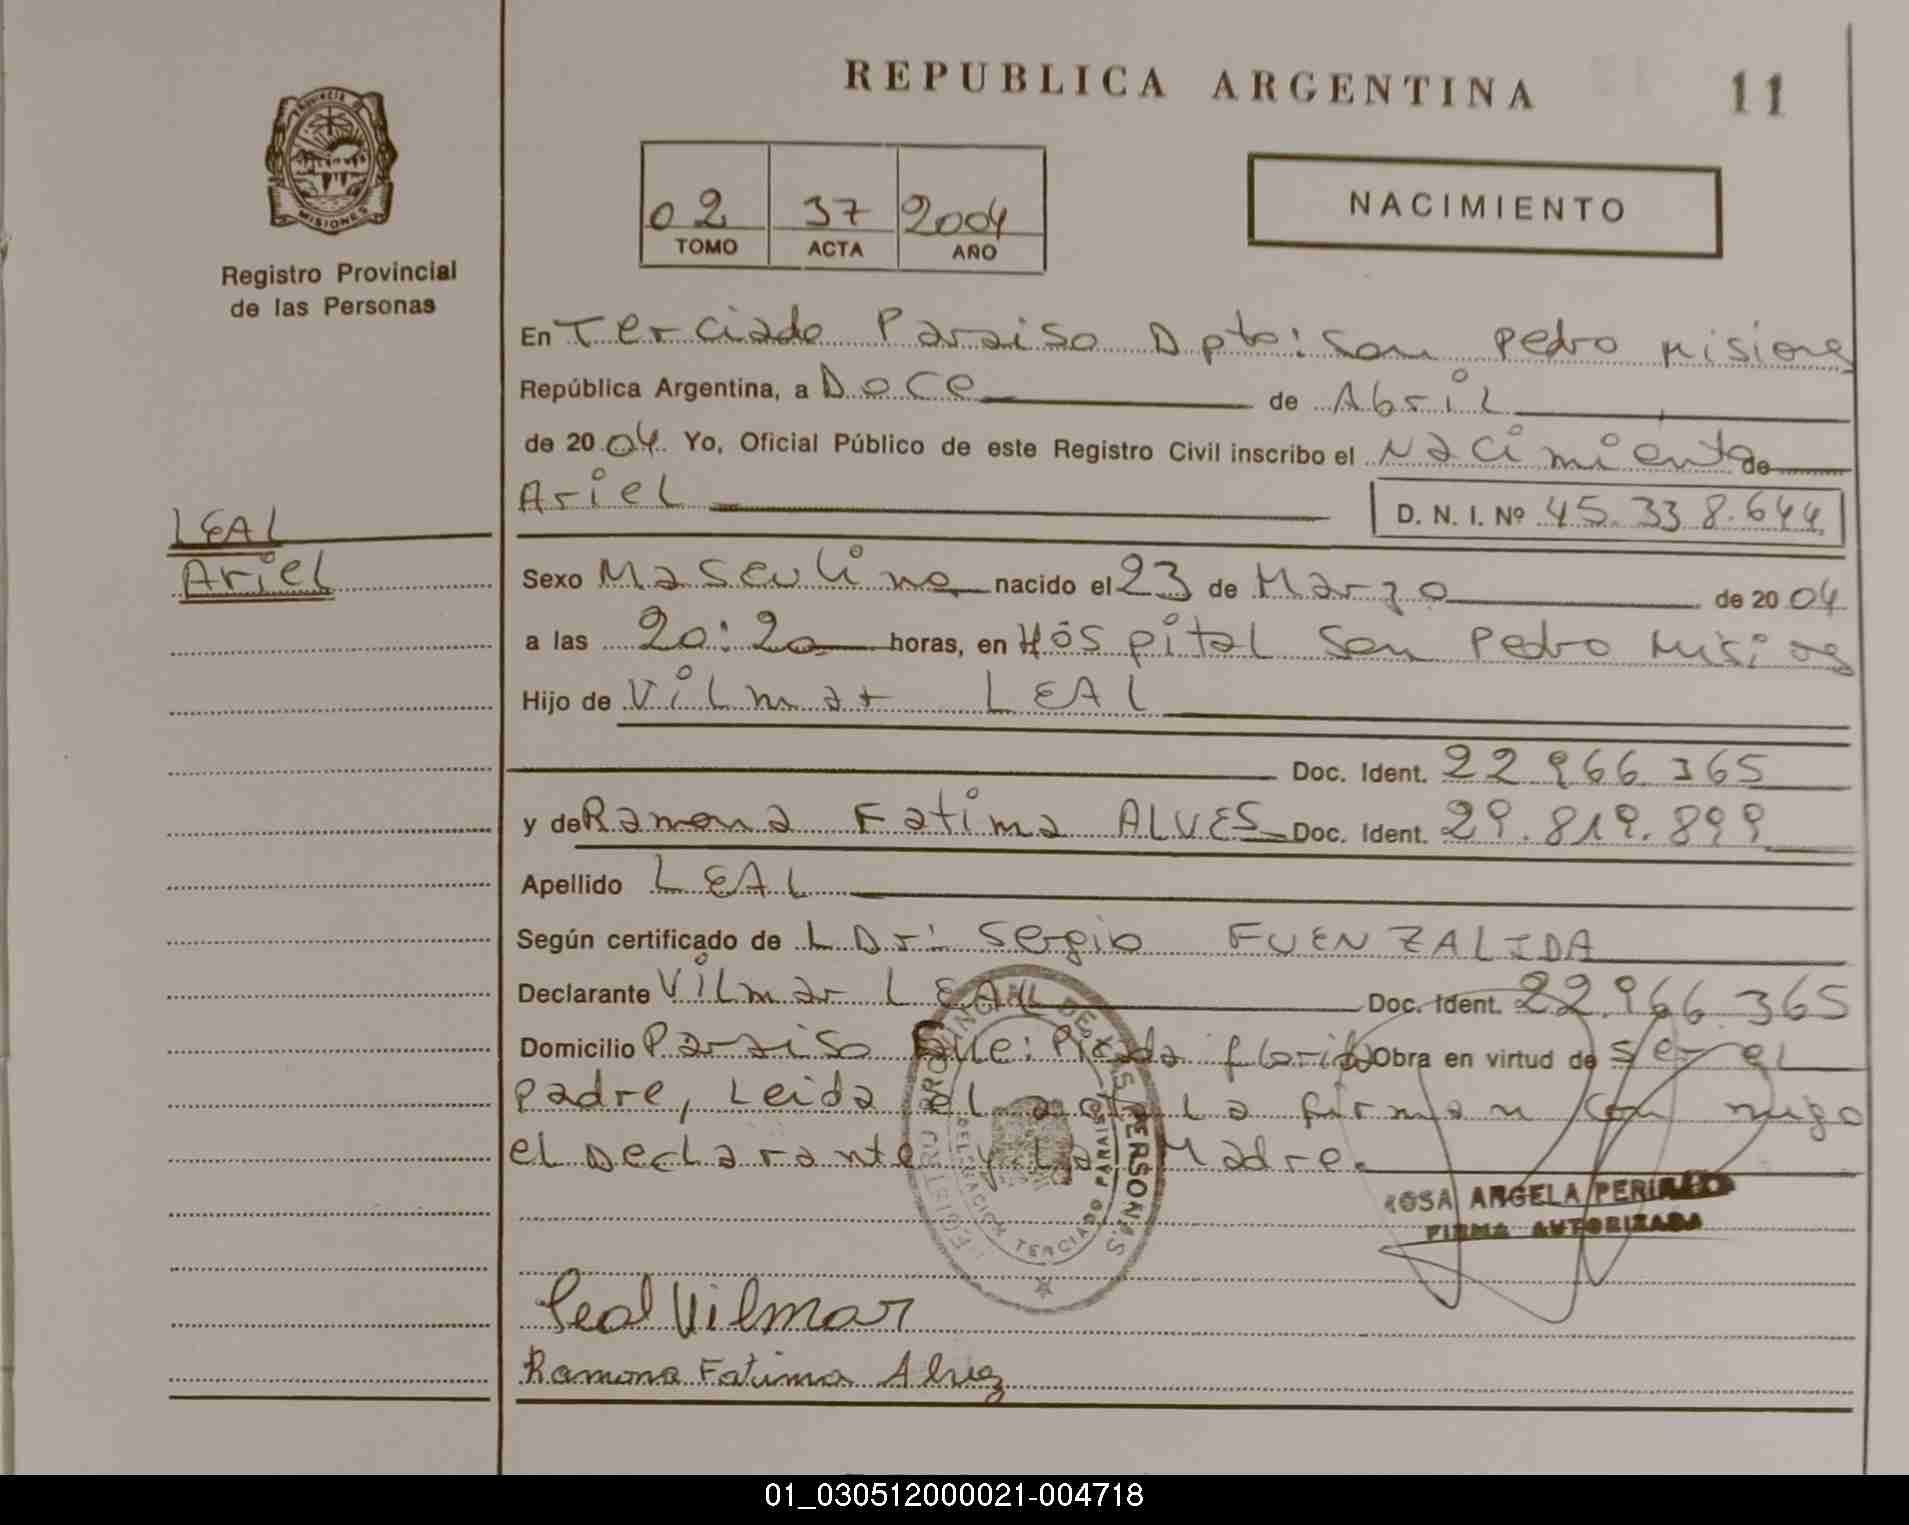 REPUBLICA ARGENTINA
11
PROVINCIA DE
MISIONES
Registro Provincial
de las Personas
02 37 2004
TOMO ACTA AÑO
NACIMIENTO
En Terciado Paraiso Dpto: San Pedro Misiones
República Argentina, a Doce de Abril
de 2004 Yo, Oficial Público de este Registro Civil inscribo el Nacimiento de
Ariel
D. N. I. Nº 45.338.644
LEAL
Ariel
Sexo Masculino nacido el 23 de Marzo de 2004
a las 20:20 horas, en Hospital San Pedro Misiones
Hijo de Vilmar LEAL
Doc. Ident. 22.966.365
y de Ramona Fatima ALVES Doc. Ident. 29.819.899
Apellido LEAL
Según certificado de L Dr: Sergio FUENZALIDA
Declarante Vilmar LEAL Doc. Ident. 22.966.365
Domicilio Paraiso Picada Obra en virtud de ser el
padre, Leida el acta La firman con migo
el Declarante y La Madre.
REGISTRO PROVINCIAL DE LAS PERSONAS
DELEGACION TERCIADO PARAISO
ROSA ANGELA
FIRMA AUTORIZADA
Leal Vilmar
Ramona Fatima Alvez
01_030512000021-004718